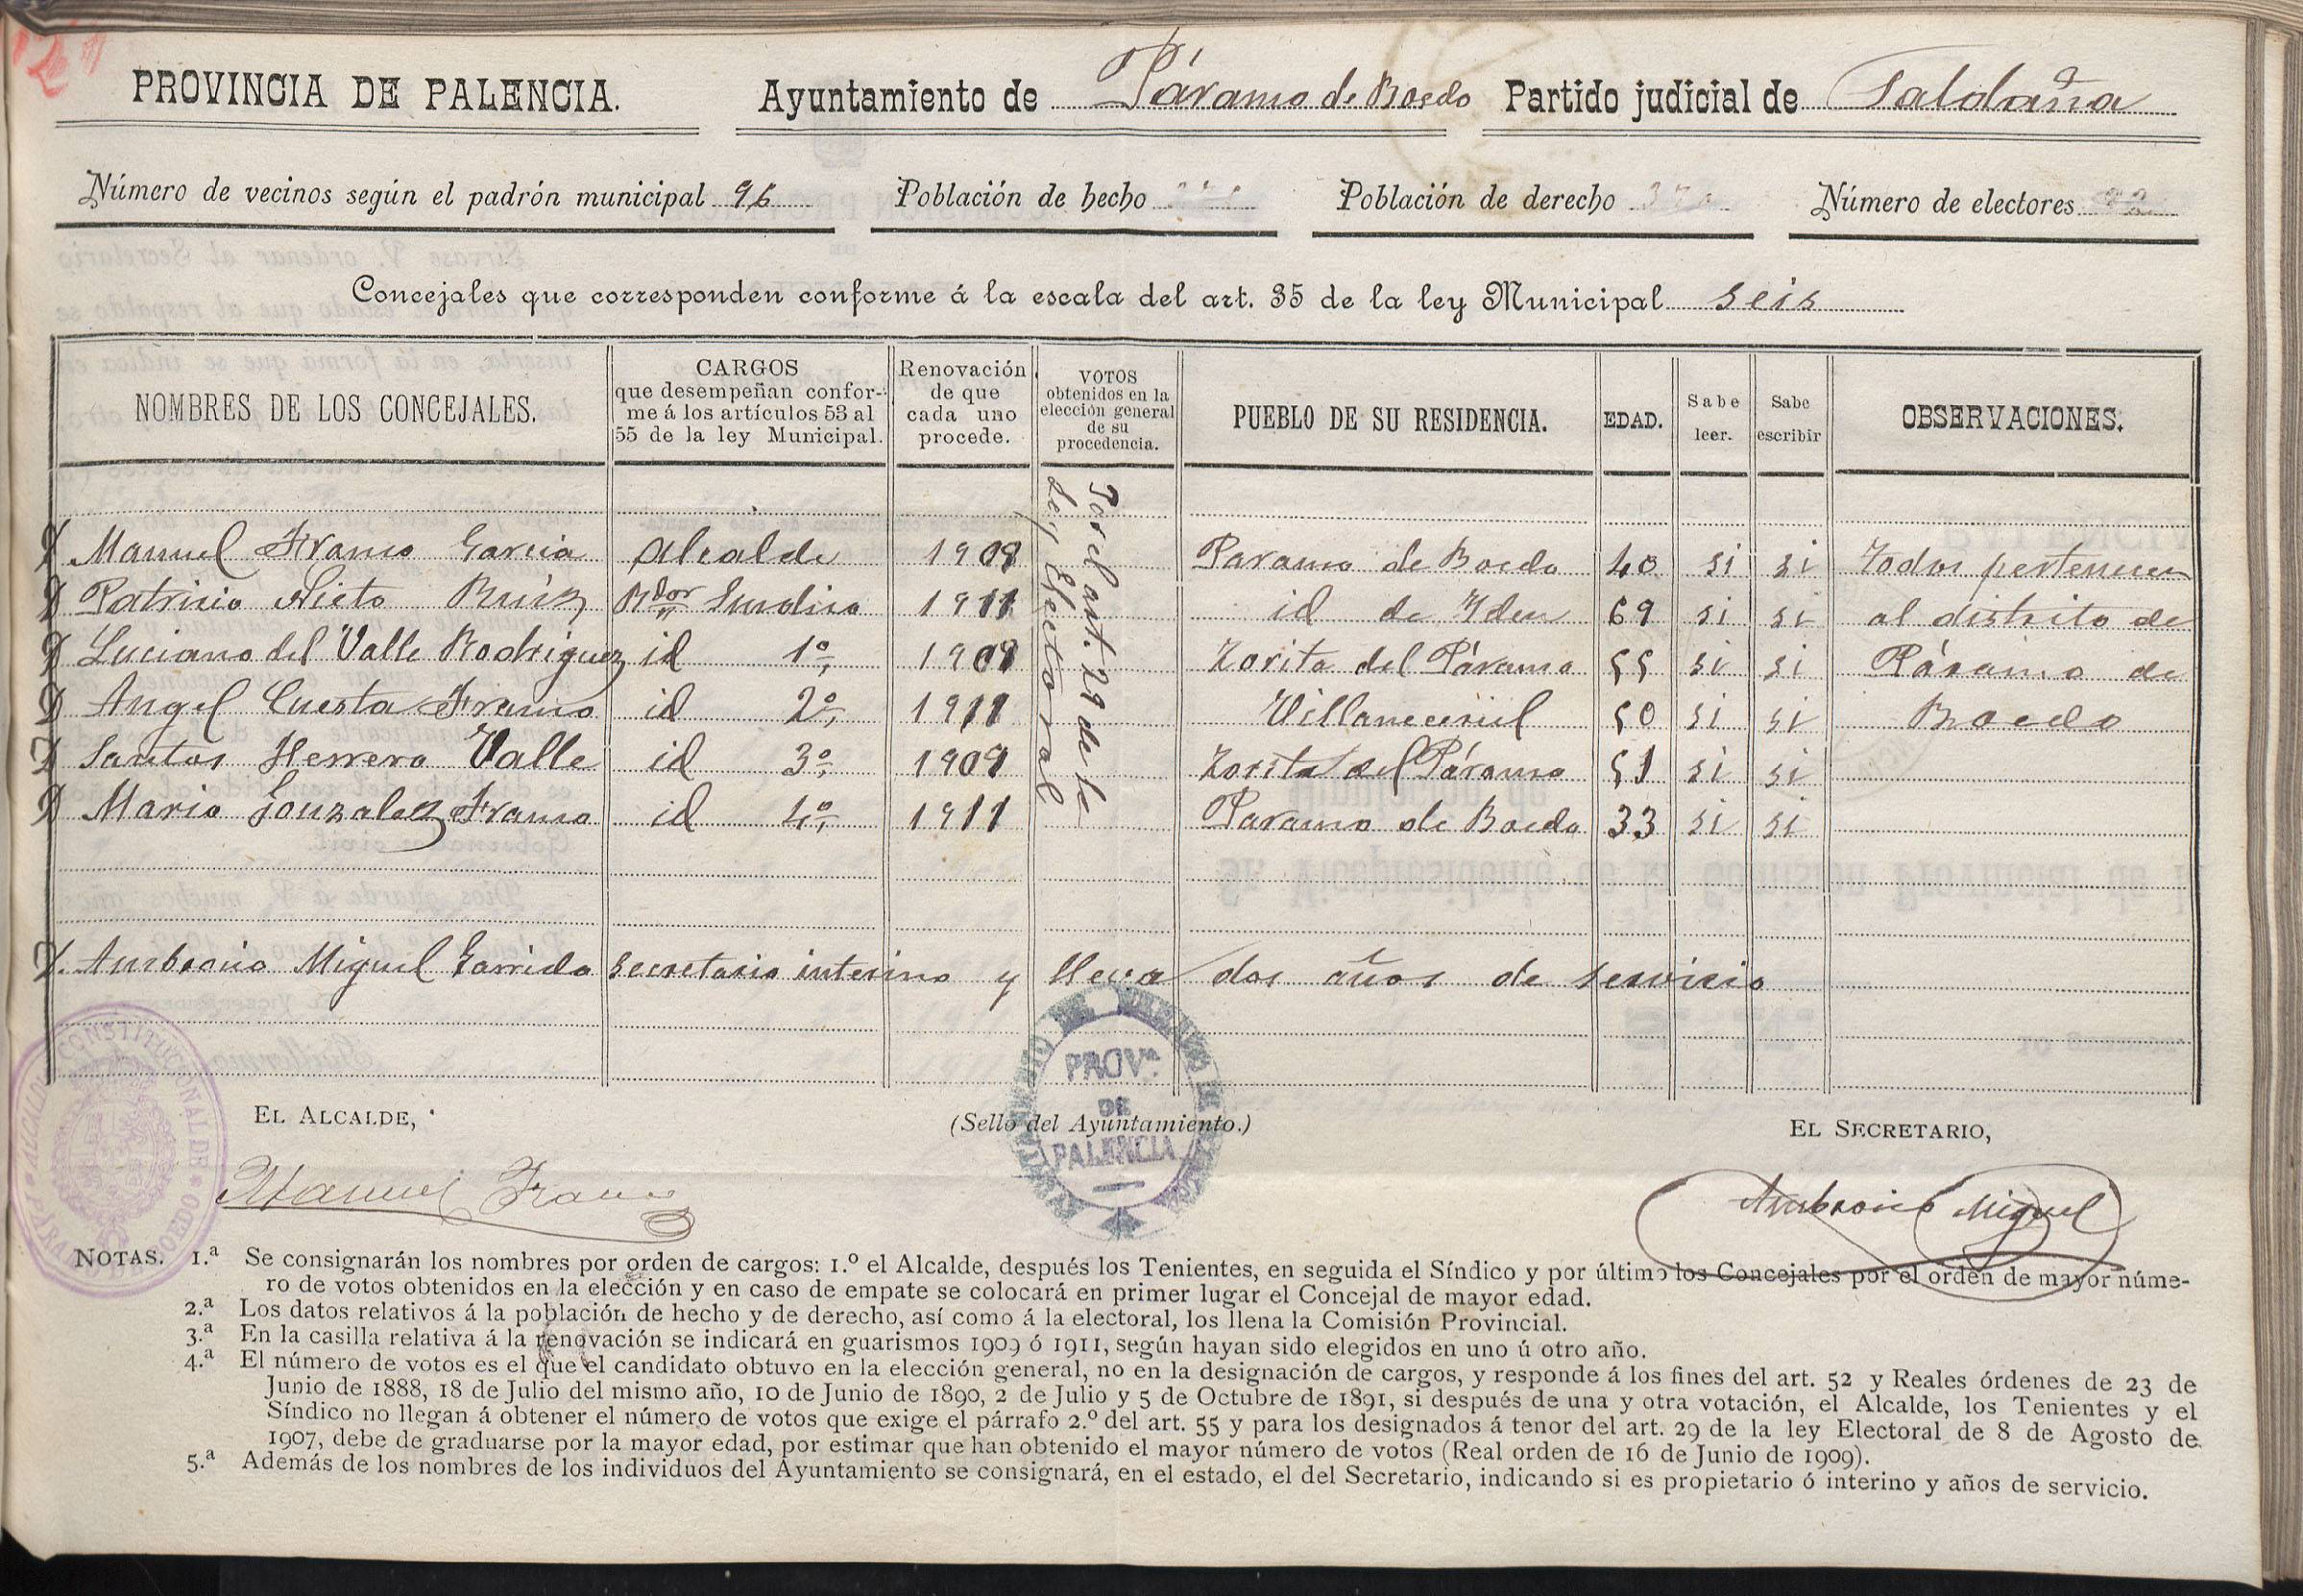 PROVINCIA DE PALENCIA. Ayuntamiento de Páramo de Boedo Partido judicial de Saldaña
Número de vecinos según el padrón municipal 96 Población de hecho Población de derecho Número de electores
Concejales que corresponden conforme á la escala del art. 35 de la ley Municipal seis
NOMBRES DE LOS CONCEJALES. CARGOS que desempeñan confor- me á los artículos 53 al 55 de la ley Municipal. Renovación de que cada uno procede. VOTOS obtenidos en la elección general de su procedencia. PUEBLO DE SU RESIDENCIA. EDAD. Sabe leer. Sabe escribir OBSERVACIONES.
Por el art. 29 de la
Ley Electoral
Manuel Franco Garcia Alcalde 1909 Paramo de Boedo 40 si si Todos pertenecen
Patricio Nieto Ruiz Rdor Sindico 1911 id de Yden 69 si si al distrito de
Luciano del Valle Rodriguez id 1º 1909 Zorita del Páramo 55 si si Páramo de
Angel Cuesta Franco id 2º 1911 Villaneceriel 50 si si Boedo
Santos Herrero Valle id 3º 1909 Zorita del Páramo 51 si si
Mario Gonzalez Franco id 4º 1911 Paramo de Boedo 33 si si
Ambrosio Miguel Garrido Secretario interino y lleva dos años de servicio
EL ALCALDE, (Sello del Ayuntamiento.) EL SECRETARIO,
PROVª
DE
PALENCIA
CONSTITUCIONAL DE
Manuel Franco Ambrosio Miguel
NOTAS. 1.ª Se consignarán los nombres por orden de cargos: 1.º el Alcalde, después los Tenientes, en seguida el Síndico y por último los Concejales por el orden de mayor núme-
ro de votos obtenidos en la elección y en caso de empate se colocará en primer lugar el Concejal de mayor edad.
2.ª Los datos relativos á la población de hecho y de derecho, así como á la electoral, los llena la Comisión Provincial.
3.ª En la casilla relativa á la renovación se indicará en guarismos 1909 ó 1911, según hayan sido elegidos en uno ú otro año.
4.ª El número de votos es el que el candidato obtuvo en la elección general, no en la designación de cargos, y responde á los fines del art. 52 y Reales órdenes de 23 de
Junio de 1888, 18 de Julio del mismo año, 10 de Junio de 1890, 2 de Julio y 5 de Octubre de 1891, si después de una y otra votación, el Alcalde, los Tenientes y el
Síndico no llegan á obtener el número de votos que exige el párrafo 2.º del art. 55 y para los designados á tenor del art. 29 de la ley Electoral de 8 de Agosto de
1907, debe de graduarse por la mayor edad, por estimar que han obtenido el mayor número de votos (Real orden de 16 de Junio de 1909).
5.ª Además de los nombres de los individuos del Ayuntamiento se consignará, en el estado, el del Secretario, indicando si es propietario ó interino y años de servicio.